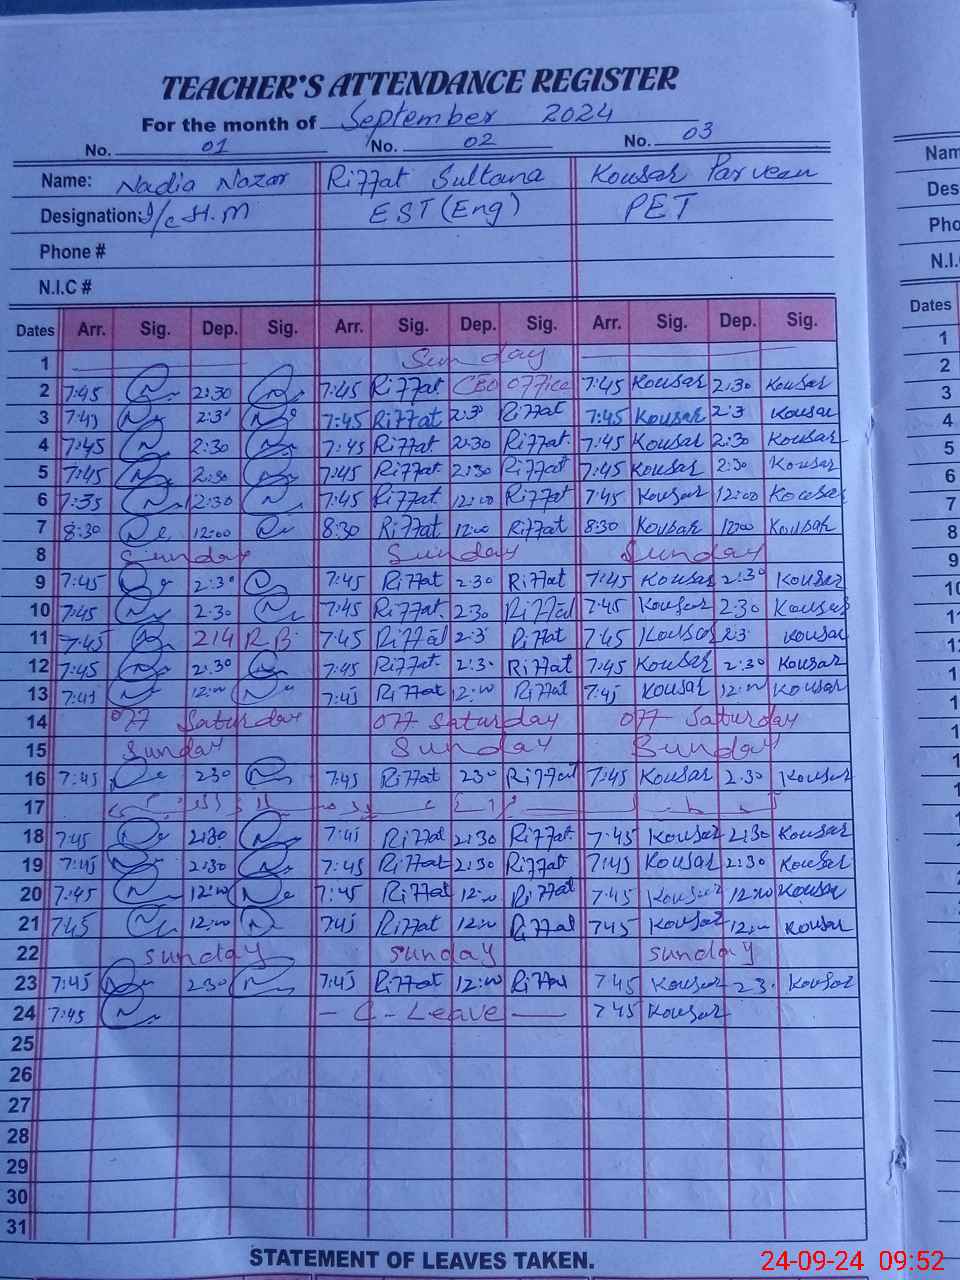 TEACHER'S ATTENDANCE REGISTER
For the month of September 2024
No. 01 No. 02 No. 03
Name: Nadia Nazar Riffat Sultana Kousar Parveen Nam
Designation: I/c H.M EST (Eng) PET Des
Phone # Pho
N.I.C # N.I.C
Dates Arr. Sig. Dep. Sig. Arr. Sig. Dep. Sig. Arr. Sig. Dep. Sig. Dates
1 Sunday 1
2 7:45 2:30 7:45 Riffat CEO office 7:45 Kousar 2:30 Kousar 2
3 7:45 2:3 7:45 Riffat 2:3 Riffat 7:45 Kousar 2:3 Kousar 3
4 7:45 2:30 7:45 Riffat 2:30 Riffat 7:45 Kousar 2:30 Kousar 4
5 7:45 2:30 7:45 Riffat 2:30 Riffat 7:45 Kousar 2:30 Kousar 5
6 7:35 12:30 7:45 Riffat 12:00 Riffat 7:45 Kousar 12:00 Kousar 6
7 8:30 12:00 8:30 Riffat 12:00 Riffat 8:30 Kousar 12:00 Kousar 7
8 Sunday Sunday Sunday 8
9 7:45 2:30 7:45 Riffat 2:30 Riffat 7:45 Kousar 2:30 Kousar 9
10 7:45 2:30 7:45 Riffat 2:30 Riffat 7:45 Kousar 2:30 Kousar 10
11 7:45 214 R.B. 7:45 Riffat 2:3 Riffat 7:45 Kousar 2:3 Kousar 11
12 7:45 2:30 7:45 Riffat 2:30 Riffat 7:45 Kousar 2:30 Kousar
13 7:45 12:00 7:45 Riffat 12:00 Riffat 7:45 Kousar 12:00 Kousar
14 off Saturday off Saturday off Saturday
15 Sunday Sunday Sunday
16 7:45 230 7:45 Riffat 230 Riffat 7:45 Kousar 2:30 Kousar
17
18 7:45 2:30 7:45 Riffat 2:30 Riffat 7:45 Kousar 2:30 Kousar
19 7:45 2:30 7:45 Riffat 2:30 Riffat 7:45 Kousar 2:30 Kousar
20 7:45 12:00 7:45 Riffat 12:00 Riffat 7:45 Kousar 12:00 Kousar
21 745 12:00 745 Riffat 12:00 Riffat 745 Kousar 12:00 Kousar
22 sunday sunday sunday
23 7:45 230 7:45 Riffat 12:00 Riffat 745 Kousar 23 Kousar
24 7:45 - C - Leave - 745 Kousar
25
26
27
28
29
30
31
STATEMENT OF LEAVES TAKEN.
24-09-24 09:52